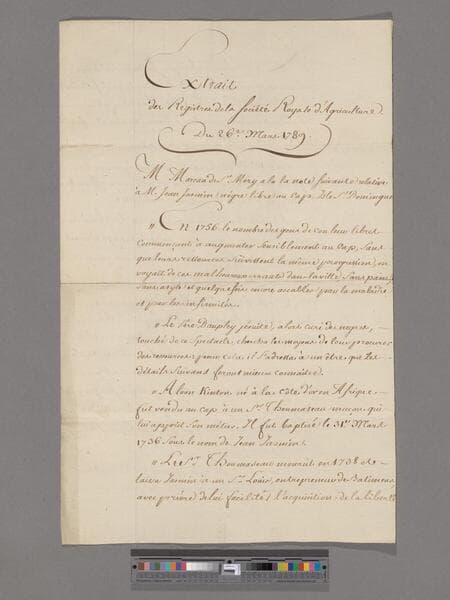 Extrait
des Registres de la Société Royale d'Agriculture.
Du 26. Mars 1789.
M Moreau de St. Mery a lu la note suivante relative
à M. Jean Jasmin nègre libre au Cap. Isle St. Domingue
" En 1756 le nombre des gens de couleur libres
commençant à augmenter sensiblement au Cap, sans
que leurs ressources suivissent la même proportion, on
voyait de ces malheureux errants dans la ville, sans pain,
sans asyle et quelquefois encore accablés par la maladie
et par les infirmités.
" Le Père Daupley jésuite, alors curé des nègres,
touché de ce spectacle, chercha les moyens de leur procurer
des ressources; pour cela il s'adressa à un être, que les
détails suivant feront mieux connaître.
" Aloon Kinson né à la côte d'or en Afrique
fut vendu au cap à un Sr. Thoumaseau maçon, qui
lui apprit son métier. Il fut baptisé le 31. Mars
1736 sous le nom de Jean Jasmin.
" Le Sr. Thoumaseau mourut en 1738 et
laissa Jasmin à un Sr. Louis, entrepreneur de Batimens
avec prière de lui faciliter l'acquisition de la liberté